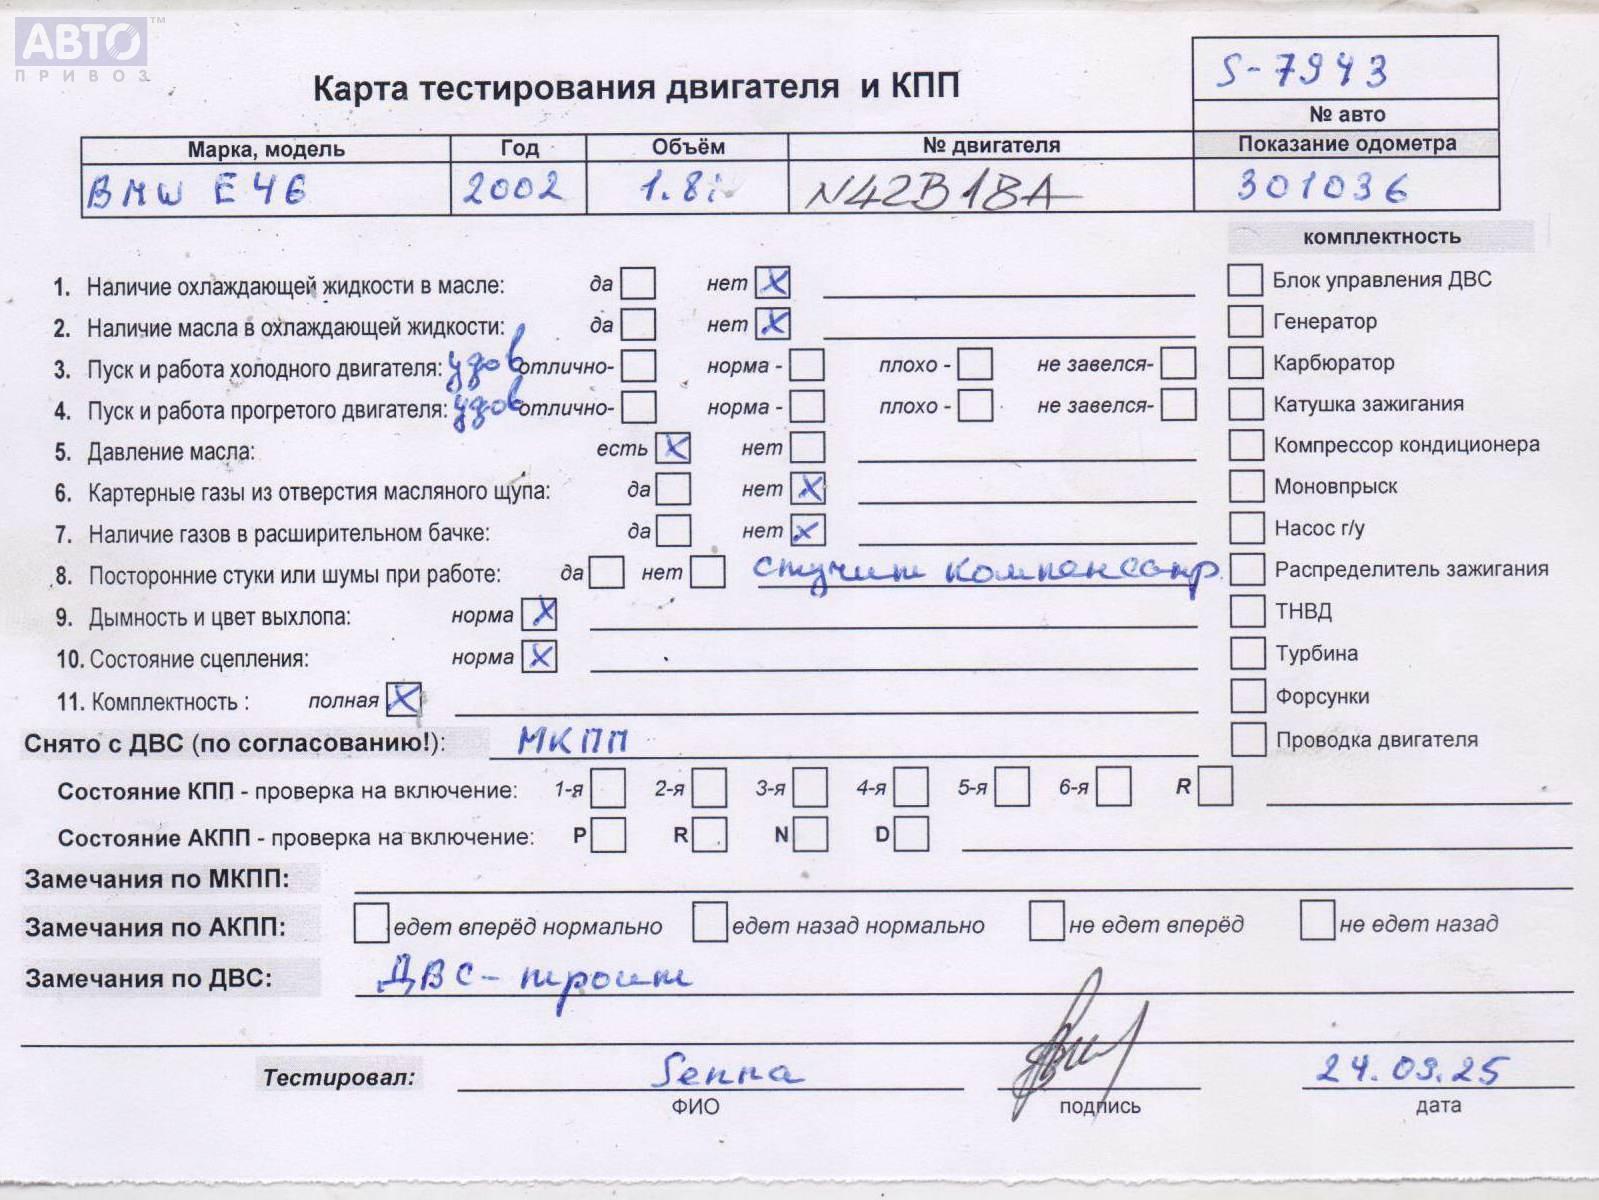 АВТО™
ПРИВОЗ
S-7943
№ авто
Карта тестирования двигателя и КПП
Марка, модель Год Объём № двигателя Показание одометра
BMW E46 2002 1.8i N42B18A 301036
комплектность
1. Наличие охлаждающей жидкости в масле: да нет X Блок управления ДВС
2. Наличие масла в охлаждающей жидкости: да нет X Генератор
3. Пуск и работа холодного двигателя: удов отлично- норма - плохо - не завелся- Карбюратор
4. Пуск и работа прогретого двигателя: удов отлично- норма - плохо - не завелся- Катушка зажигания
5. Давление масла: есть X нет Компрессор кондиционера
6. Картерные газы из отверстия масляного щупа: да нет X Моновпрыск
7. Наличие газов в расширительном бачке: да нет X Насос г/у
8. Посторонние стуки или шумы при работе: да нет стучит компенсатр. Распределитель зажигания
9. Дымность и цвет выхлопа: норма X ТНВД
10. Состояние сцепления: норма X Турбина
11. Комплектность : полная X Форсунки
Снято с ДВС (по согласованию!): МКПП Проводка двигателя
Состояние КПП - проверка на включение: 1-я 2-я 3-я 4-я 5-я 6-я R
Состояние АКПП - проверка на включение: P R N D
Замечания по МКПП:
Замечания по АКПП: едет вперёд нормально едет назад нормально не едет вперёд не едет назад
Замечания по ДВС: ДВС- троит
Тестировал: Senna 24.03.25
ФИО подпись дата